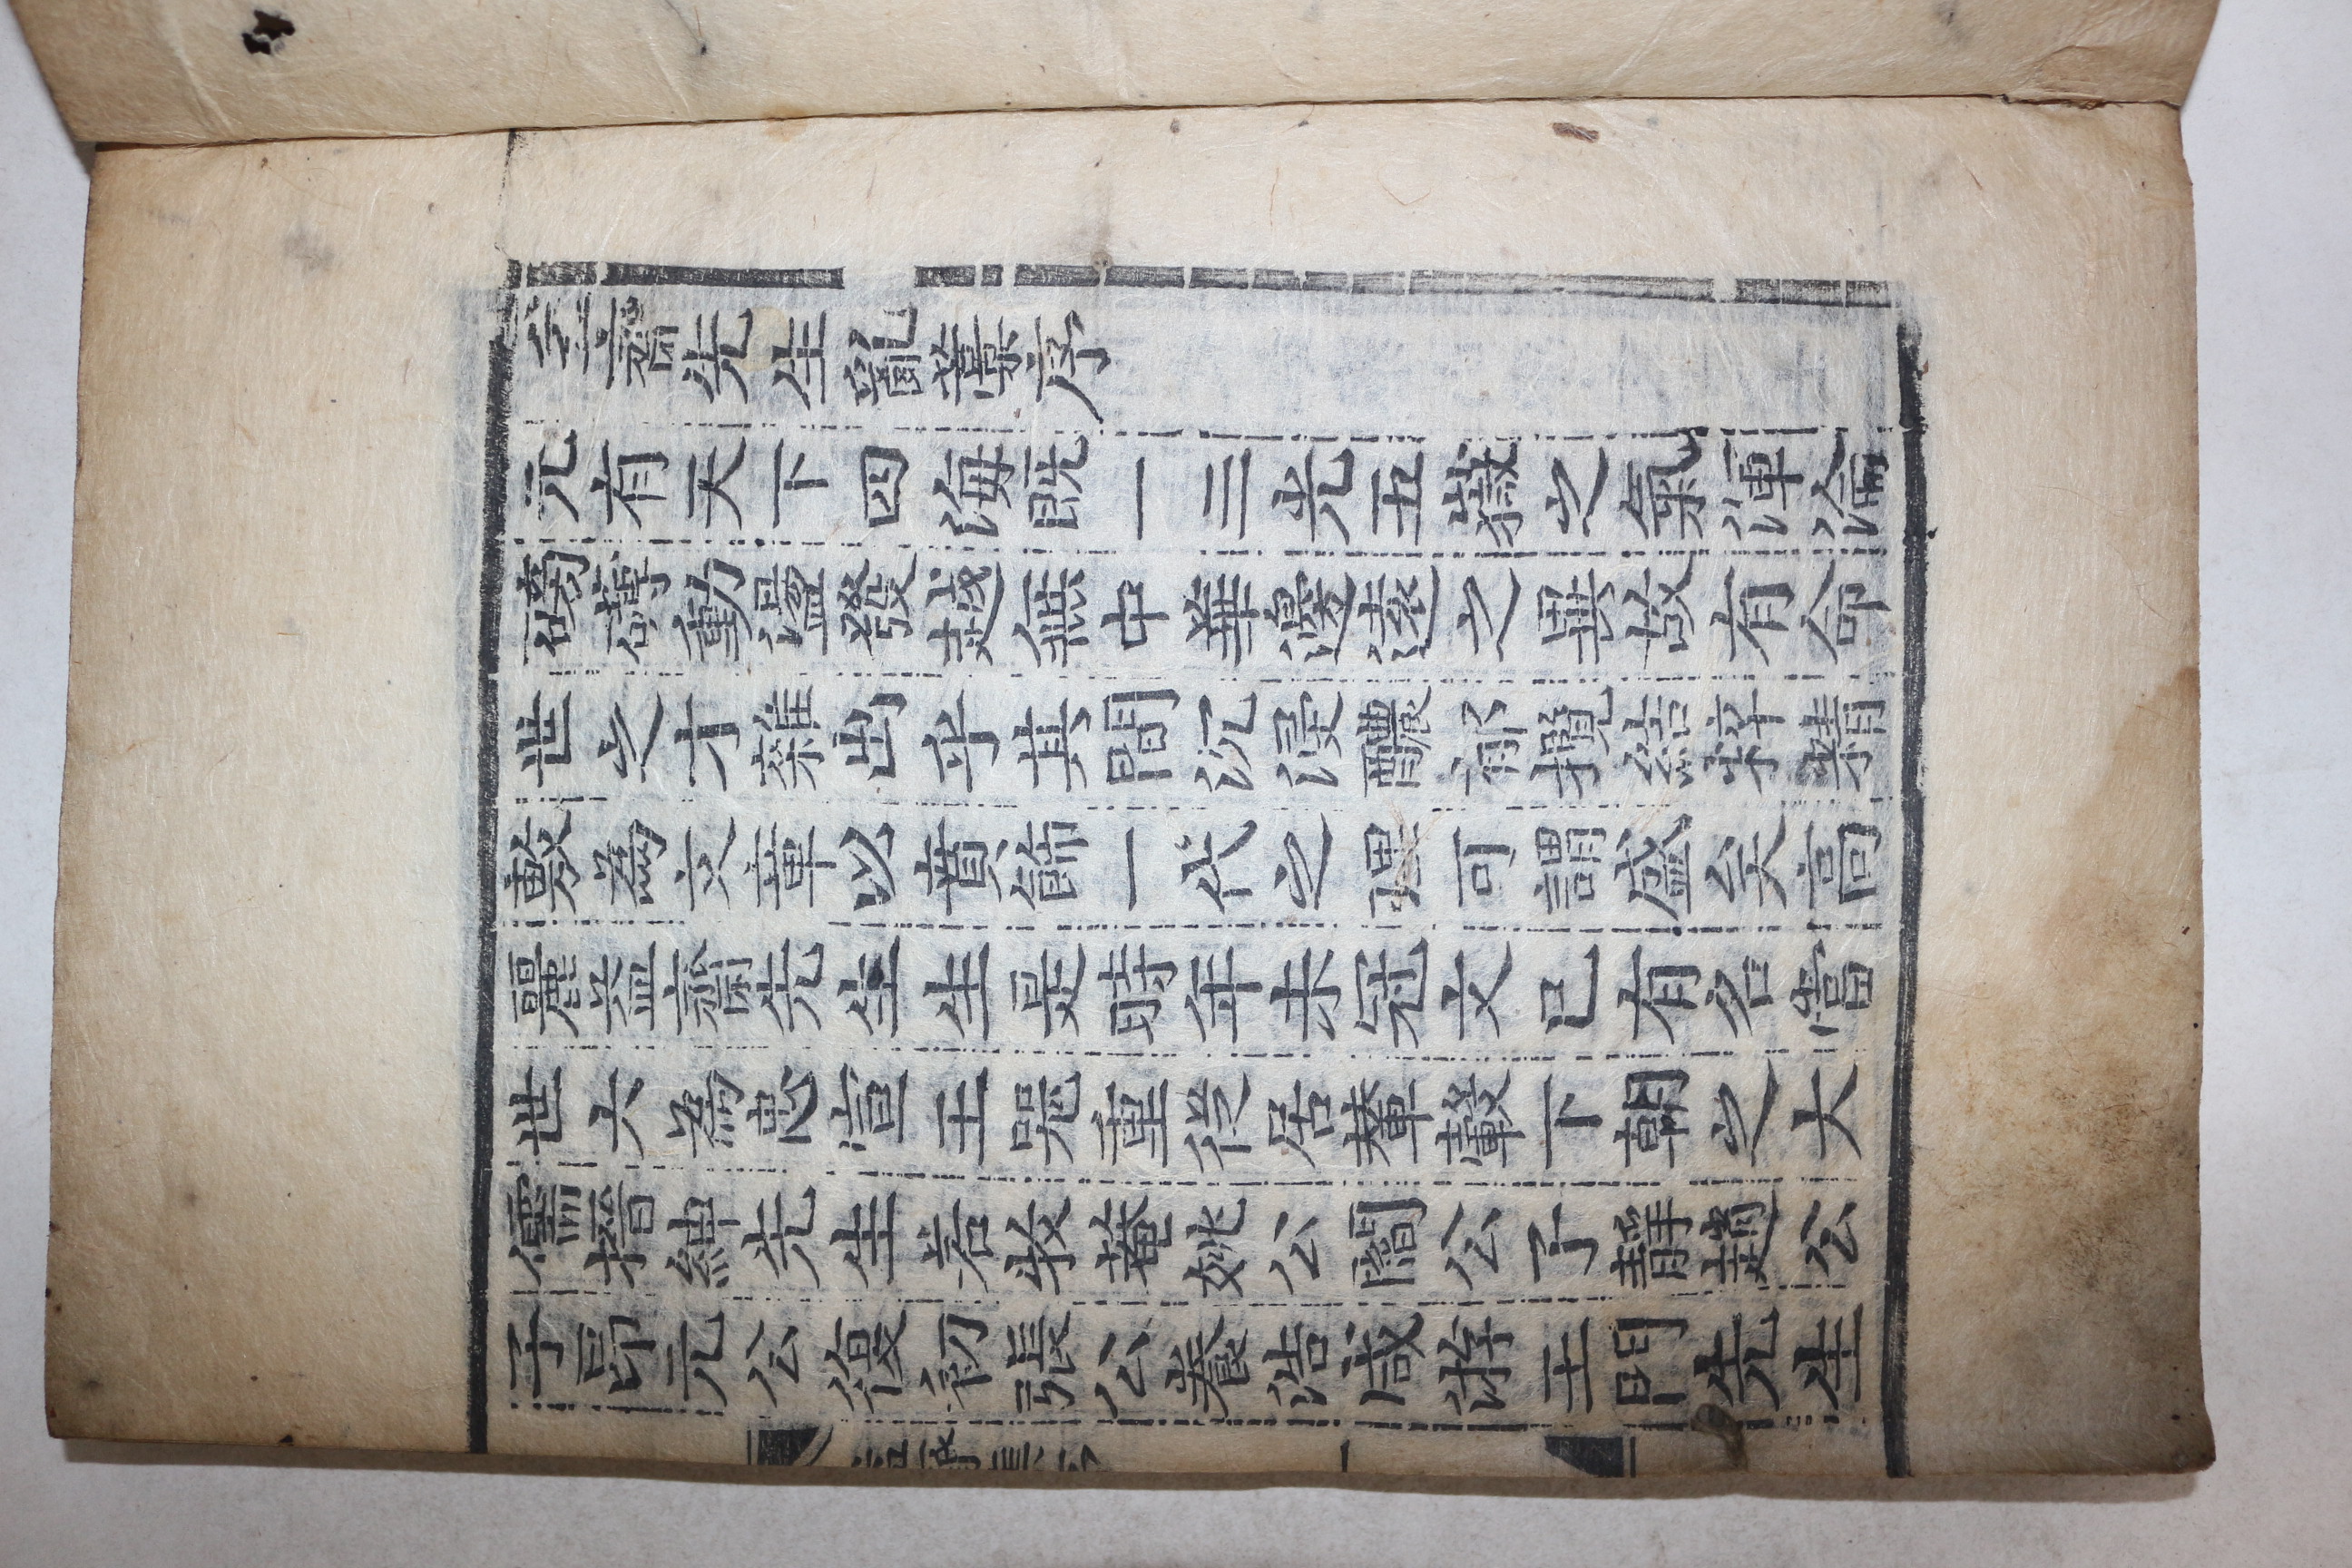 益齋先生亂藁序
元有天下四海旣一三光五嶽之氣渾淪
磅礴動盪發越無中華邊遠之異故有命
世之才雜出乎其間沉浸醲郁攬結粹精
敷爲文章以賁飾一代之理可謂盛矣高
麗益齋先生生是時年未冠文已有名當
世大爲忠宣王器重從居輦轂下朝之大
儒搢紳先生若牧菴姚公閻公子靜趙公
子昂元公復初張公養浩咸游王門先生
益齋集序 一